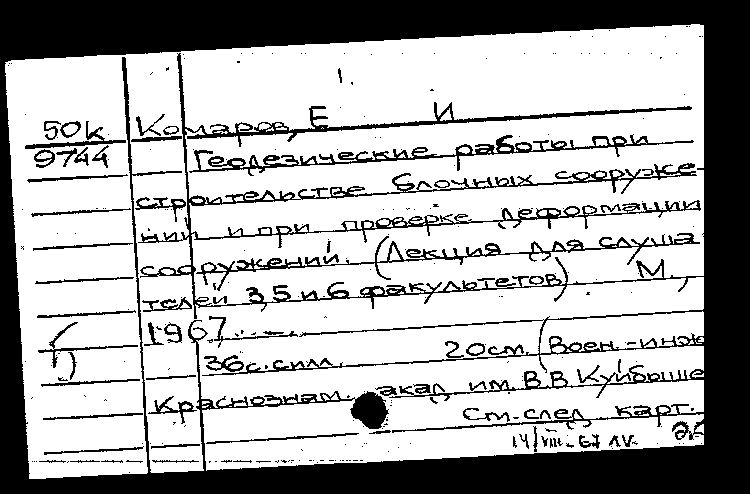 1.
50к Комаров, Е И
9744 Геодезические работы при
строительстве блочных сооруже-
ний и при проверке деформации
сооружений. (Лекция для слуша
телей 3,5 и 6 факультетов). М.,
1967.
36с. с илл. 20см. (Воен.-инж
Краснознам. акад. им. В.В Куйбыше
См. след. карт.
14/VIII-67